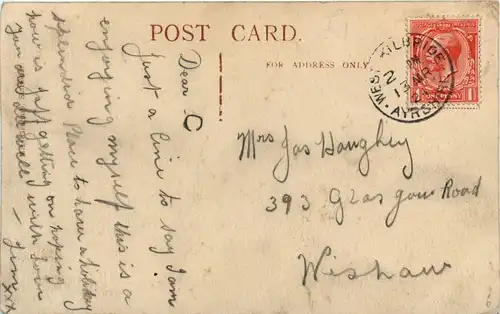 POST CARD.
FOR ADDRESS ONLY.
WEST KILBRIDE
2 PM
13 AP
AYRSHIRE
ONE PENNY
Dear C
Just a line to say I am
enjoying myself this is a
splendid Place to have a holiday
how is Jeff getting on hoping
you are all well with love
– Jim xxx
Mrs Jas Haughey
393 Glasgow Road
Wishaw